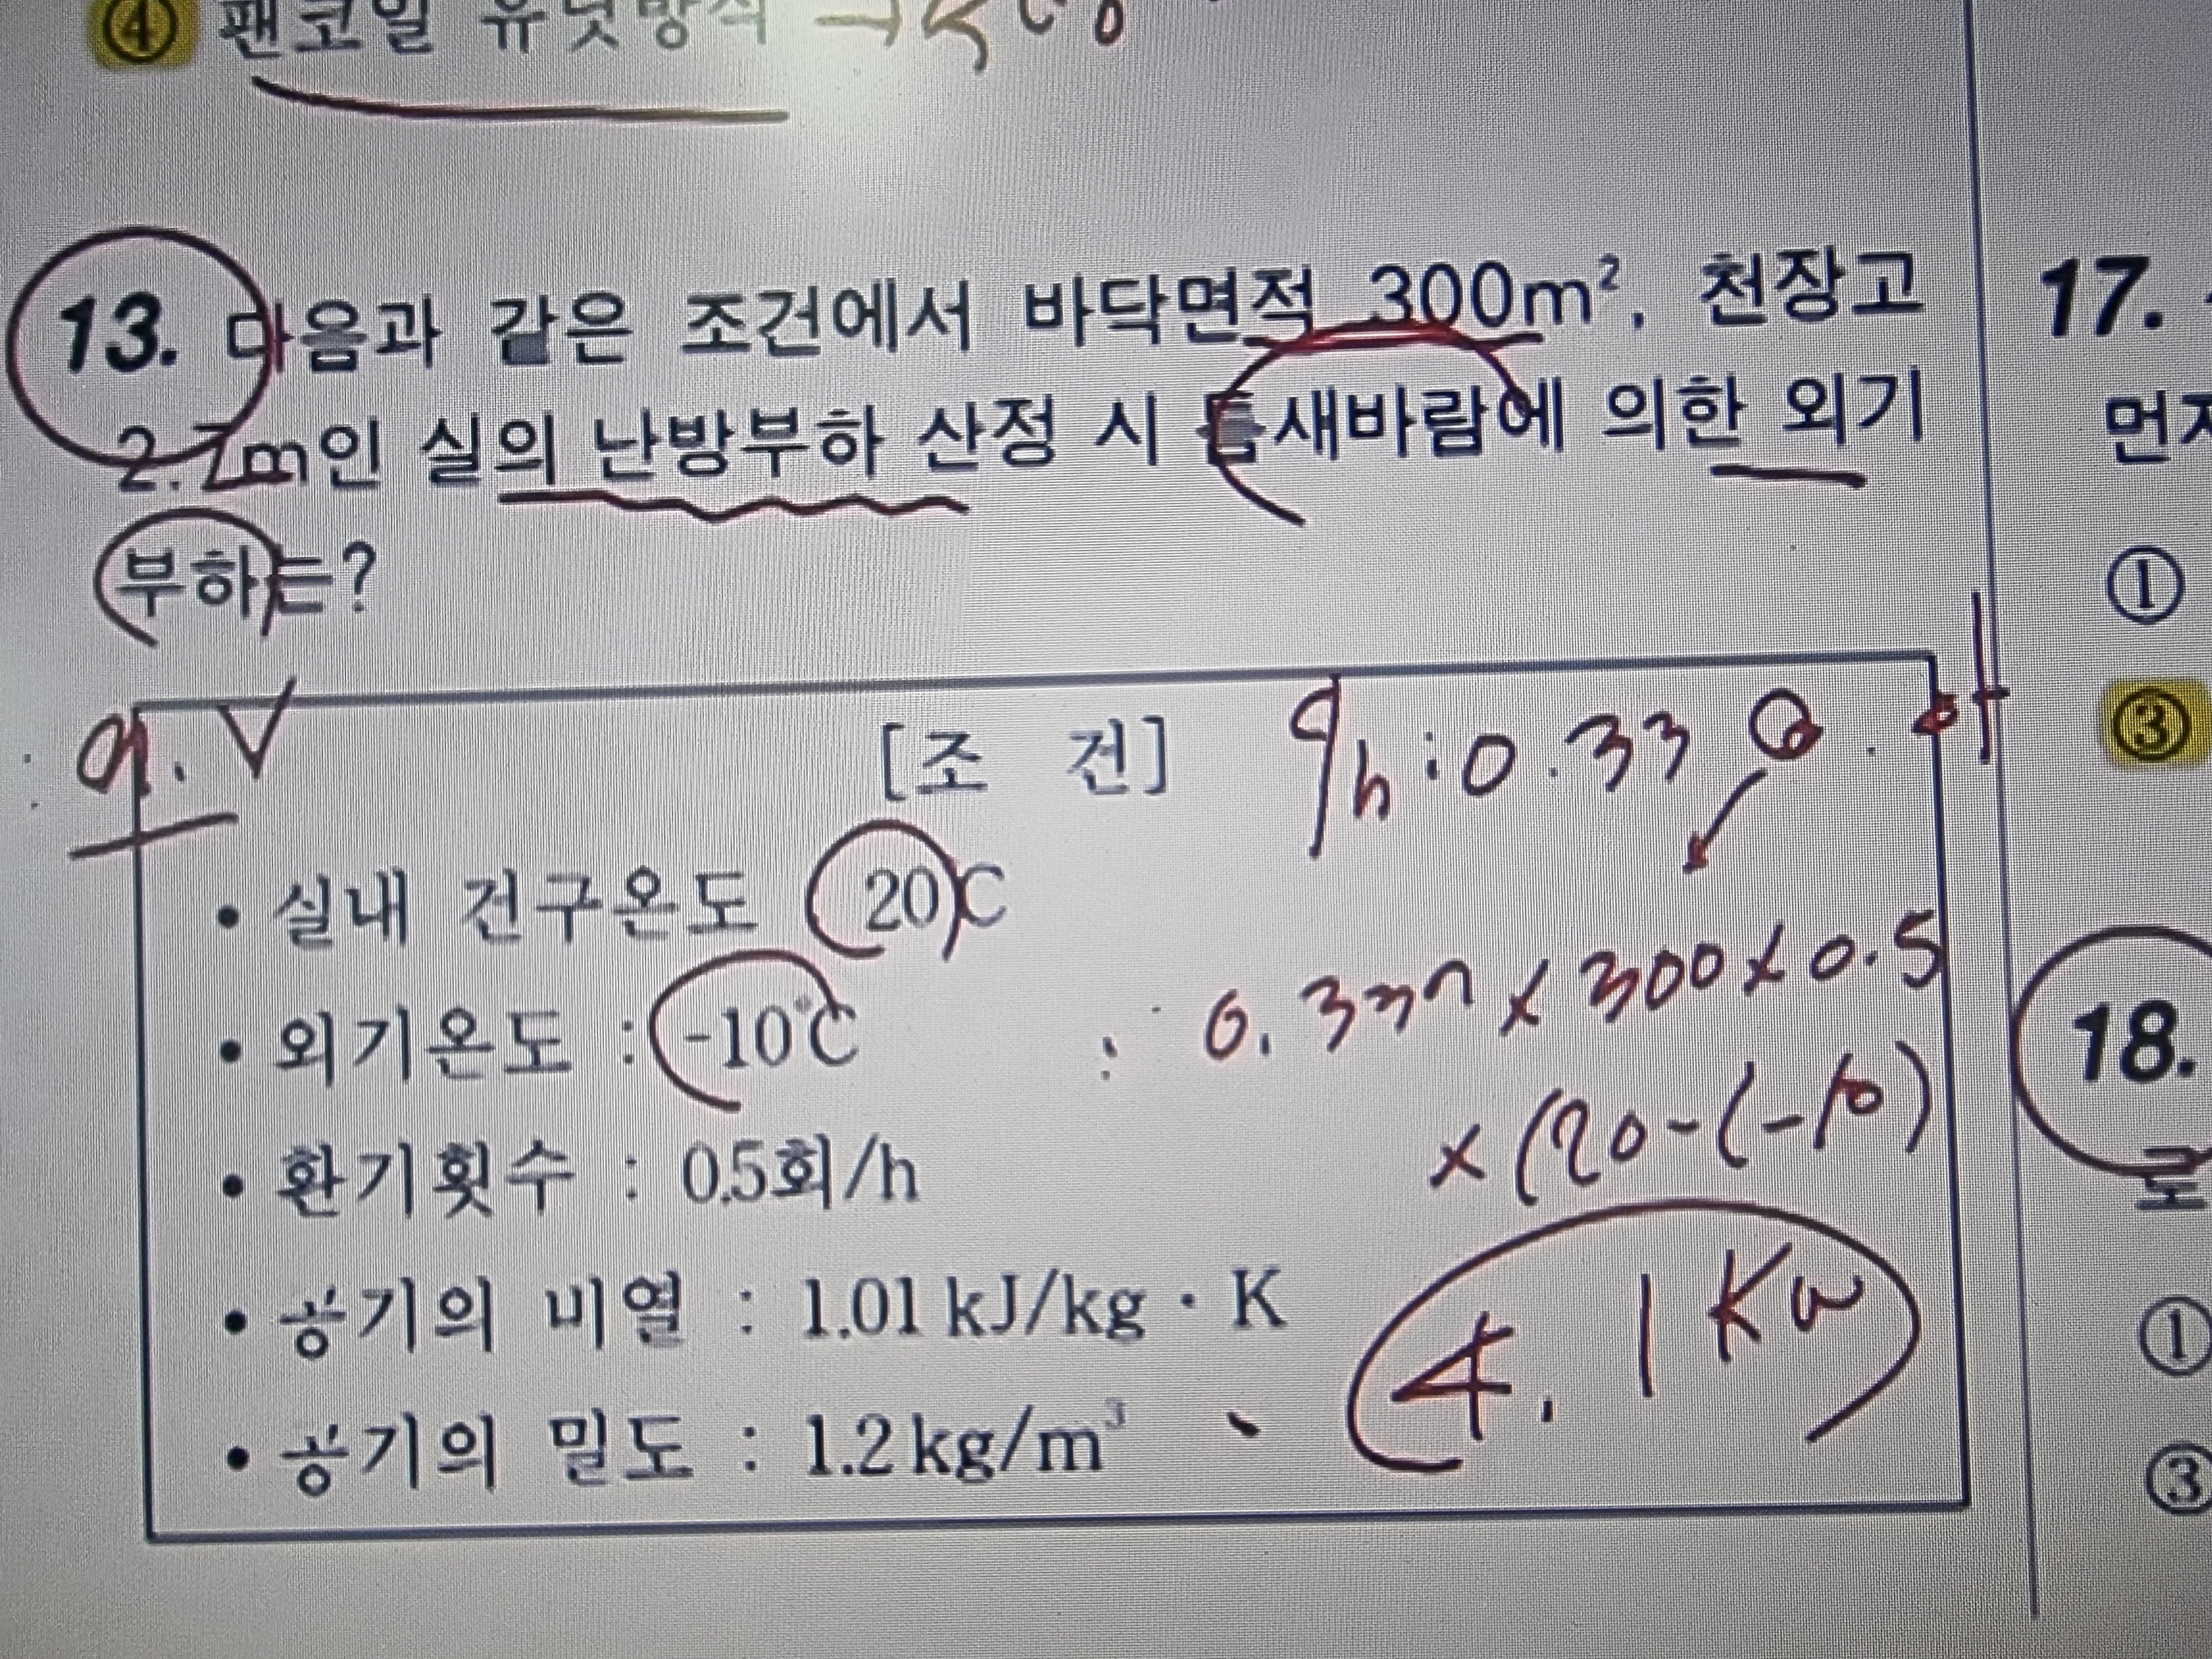 ④ 팬코일 유닛방식 →
13. 다음과 같은 조건에서 바닥면적 300m², 천장고
2.7m인 실의 난방부하 산정 시 틈새바람에 의한 외기
부하는?
q.V
[조 건] qh : 0.33 Q .
• 실내 건구온도 20℃
: 0.337 × 300 × 0.5
• 외기온도 : -10℃
× (20-(-10)
• 환기횟수 : 0.5회/h
• 공기의 비열 : 1.01 kJ/kg · K
4.1 Kw
• 공기의 밀도 : 1.2kg/m³
17.
먼저
①
③
18.
로
①
③